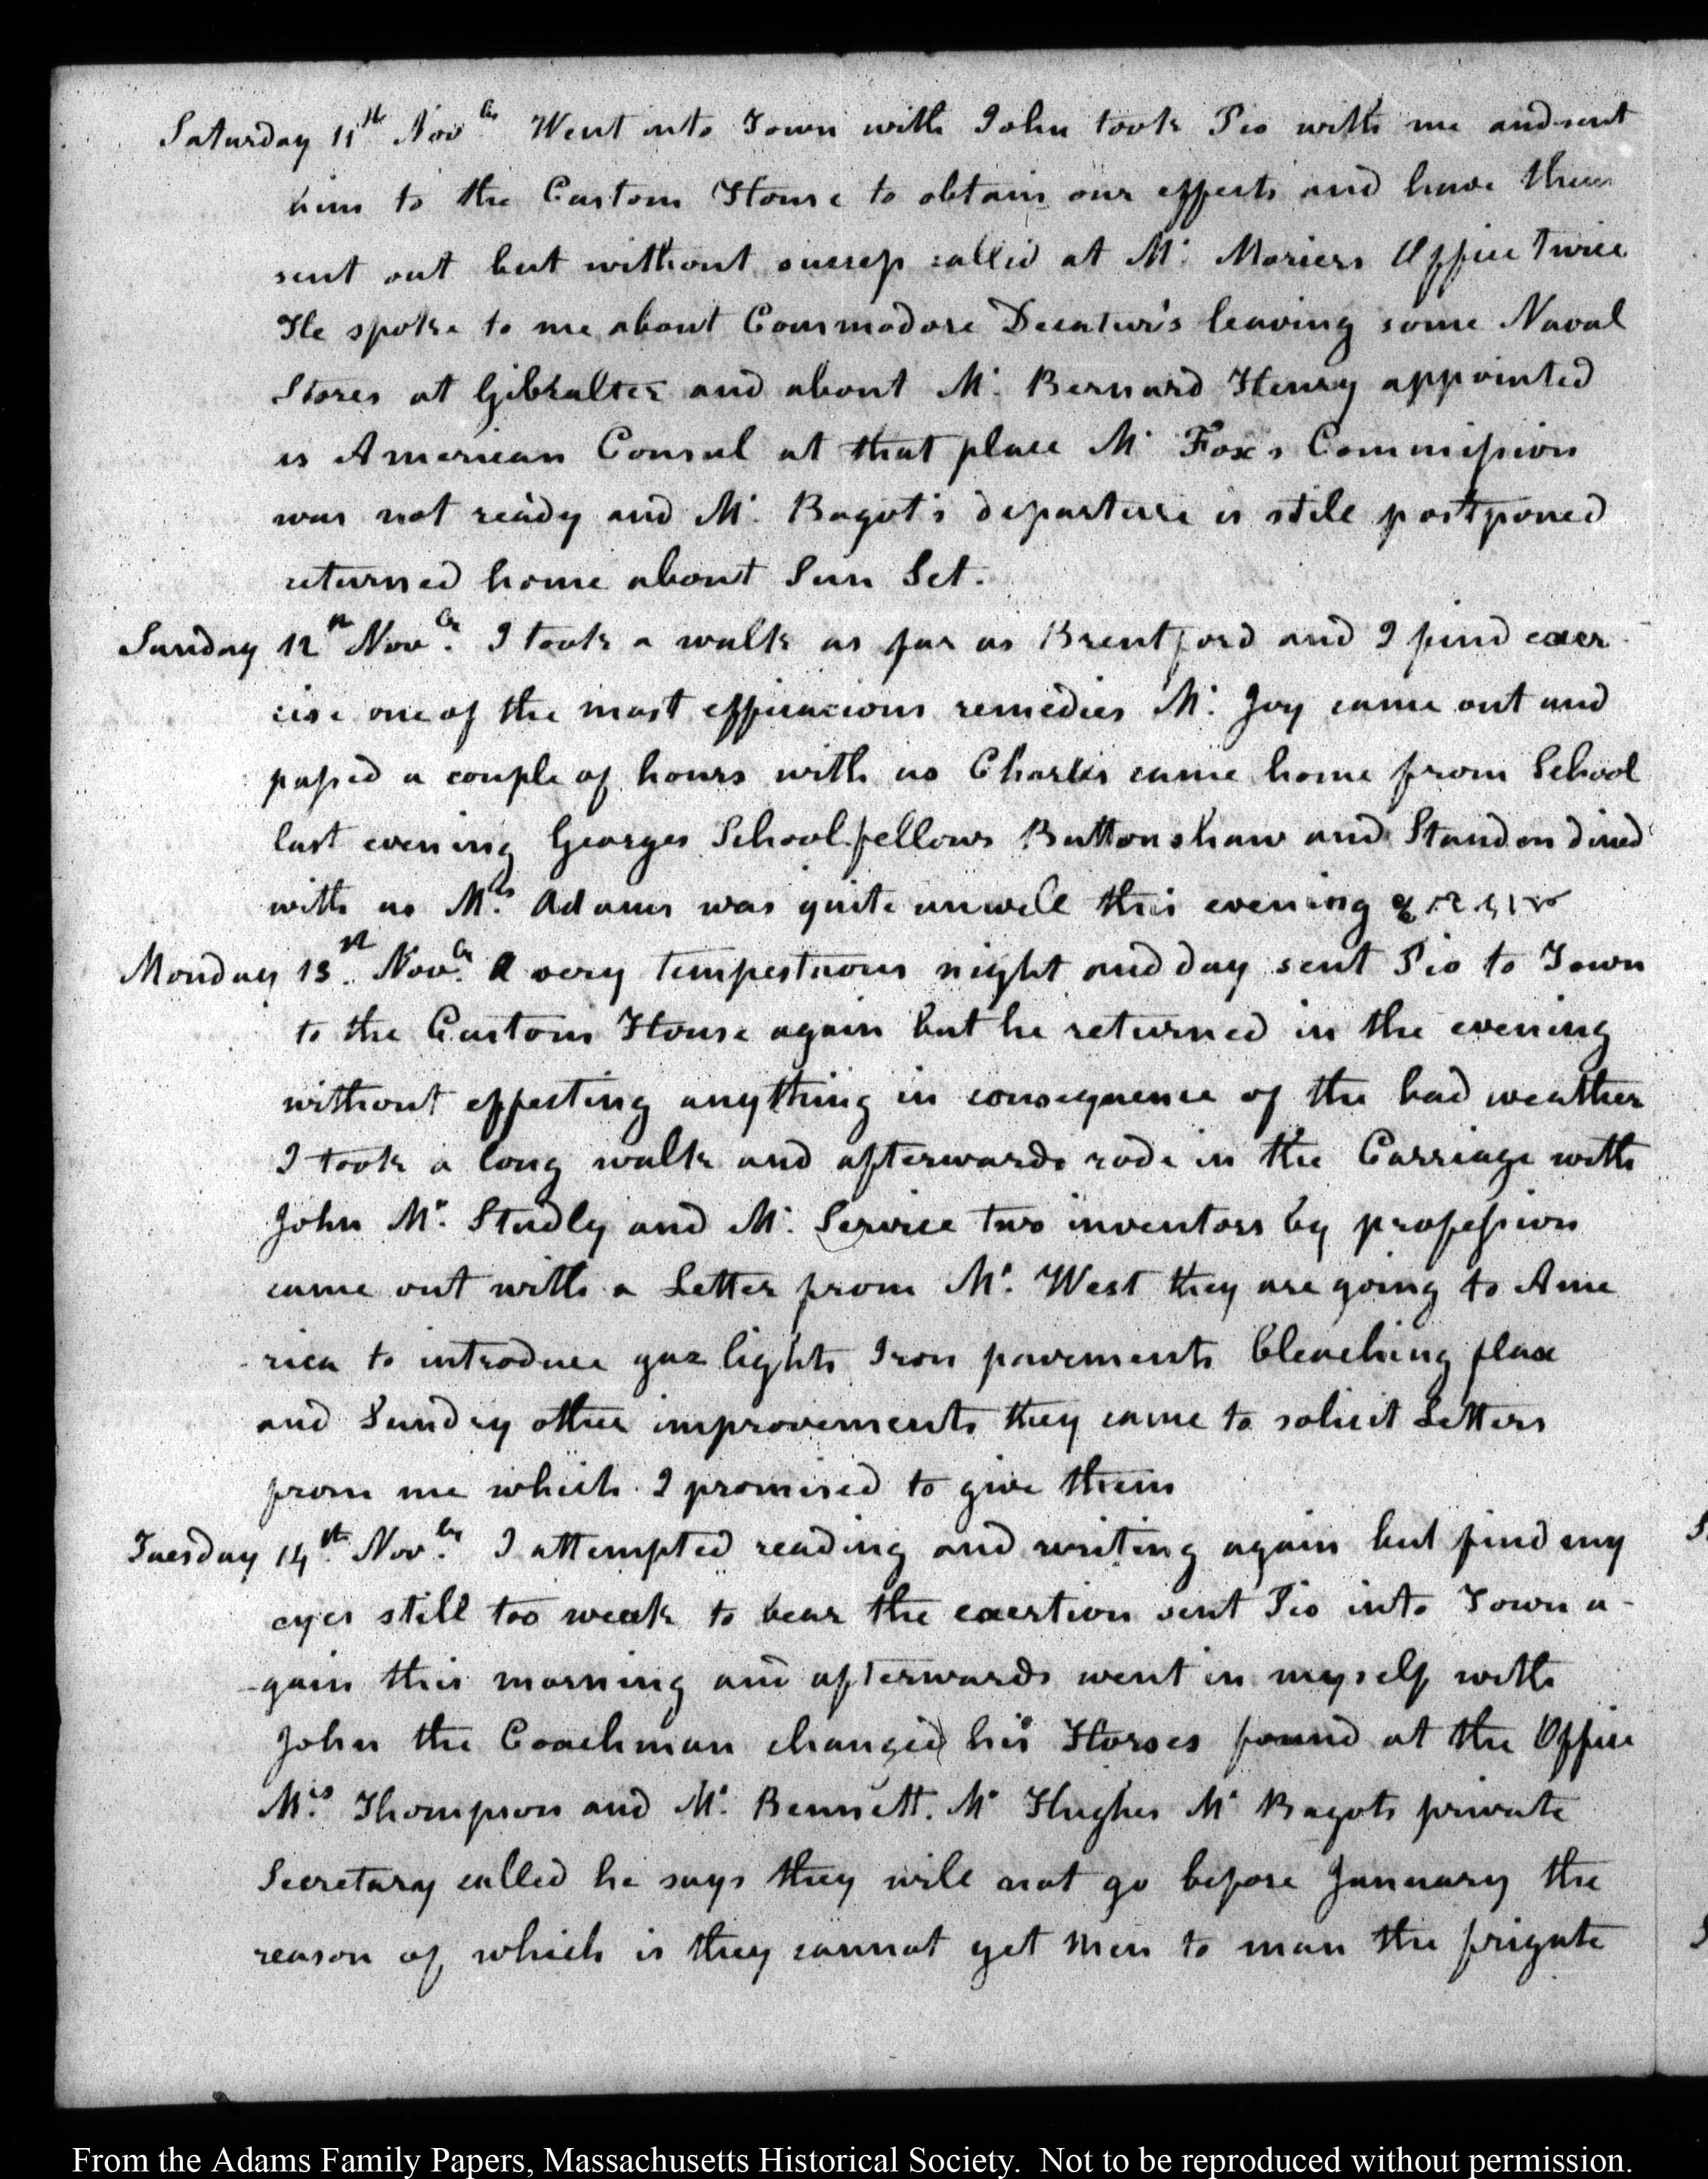 Saturday 11th Novbr Went into Town with John took Pio with me and sent
him to the Custom House to obtain our effects and have them
sent out but without success called at Mr. Moriers Office twice
He spoke to me about Commodore Decatur's leaving some Naval
Stores at Gibralter and about Mr. Bernard Henry appointed
as American Consul at that place Mr Fox's Commission
was not ready and Mr. Bagot's departure is stile postponed
returned home about Sun Set.
Sunday 12th Novbr. I took a walk as far as Brentford and I find exer
cise one of the most efficacious remedies Mr. Joy came out and
passed a couple of hours with us Charles came home from School
last evening Georges School fellows Buttonshaw and Standon dined
with us Mrs. Adams was quite unwell this evening
Monday 13th. Novbr. A very tempestuous night and day sent Pio to Town
to the Custom House again but he returned in the evening
without effecting anything in consequence of the bad weather
I took a long walk and afterwards rode in the Carriage with
John Mr. Studly and Mr. Service two inventors by profession
came out with a Letter from Mr. West they are going to Ame
-rica to introduce gaz lights Iron pavements bleaching flax
and Sundry other improvements they came to solicit Letters
from me which I promised to give them
Tuesday 14th. Novbr. I attempted reading and writing again but find my
eyes still too weak to bear the exertion sent Pio into Town a-
-gain this morning and afterwards went in myself with
John the Coachman changed his Horses found at the Office
Mrs. Thompson and Mr. Bennett. Mr Hughes Mr Bagots private
Secretary called he says they will not go before January the
reason of which is they cannot get Men to man the frigate
From the Adams Family Papers, Massachusetts Historical Society.  Not to be reproduced without permission.